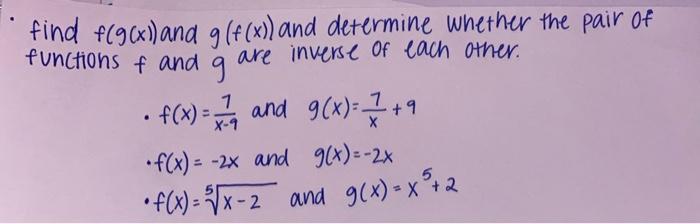 · find f(g(x)) and g(f(x)) and determine whether the pair of
functions f and g are inverse of each other.
· f(x) = 7/x-9 and g(x) = 7/x + 9
· f(x) = -2x and g(x) = -2x
· f(x) = ⁵√x-2 and g(x) = x⁵ + 2